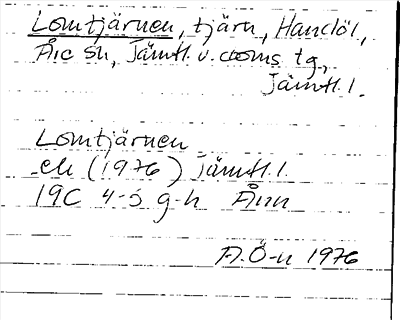 Lomtjärnen, tjärn, Handöl,
Åre sn, Jämtl. v. doms tg,
Jämtl. l.
Lomtjärnen
ek (1976) Jämtl. l.
19C 4-5 g-h Ånn
A.Ö-n 1976